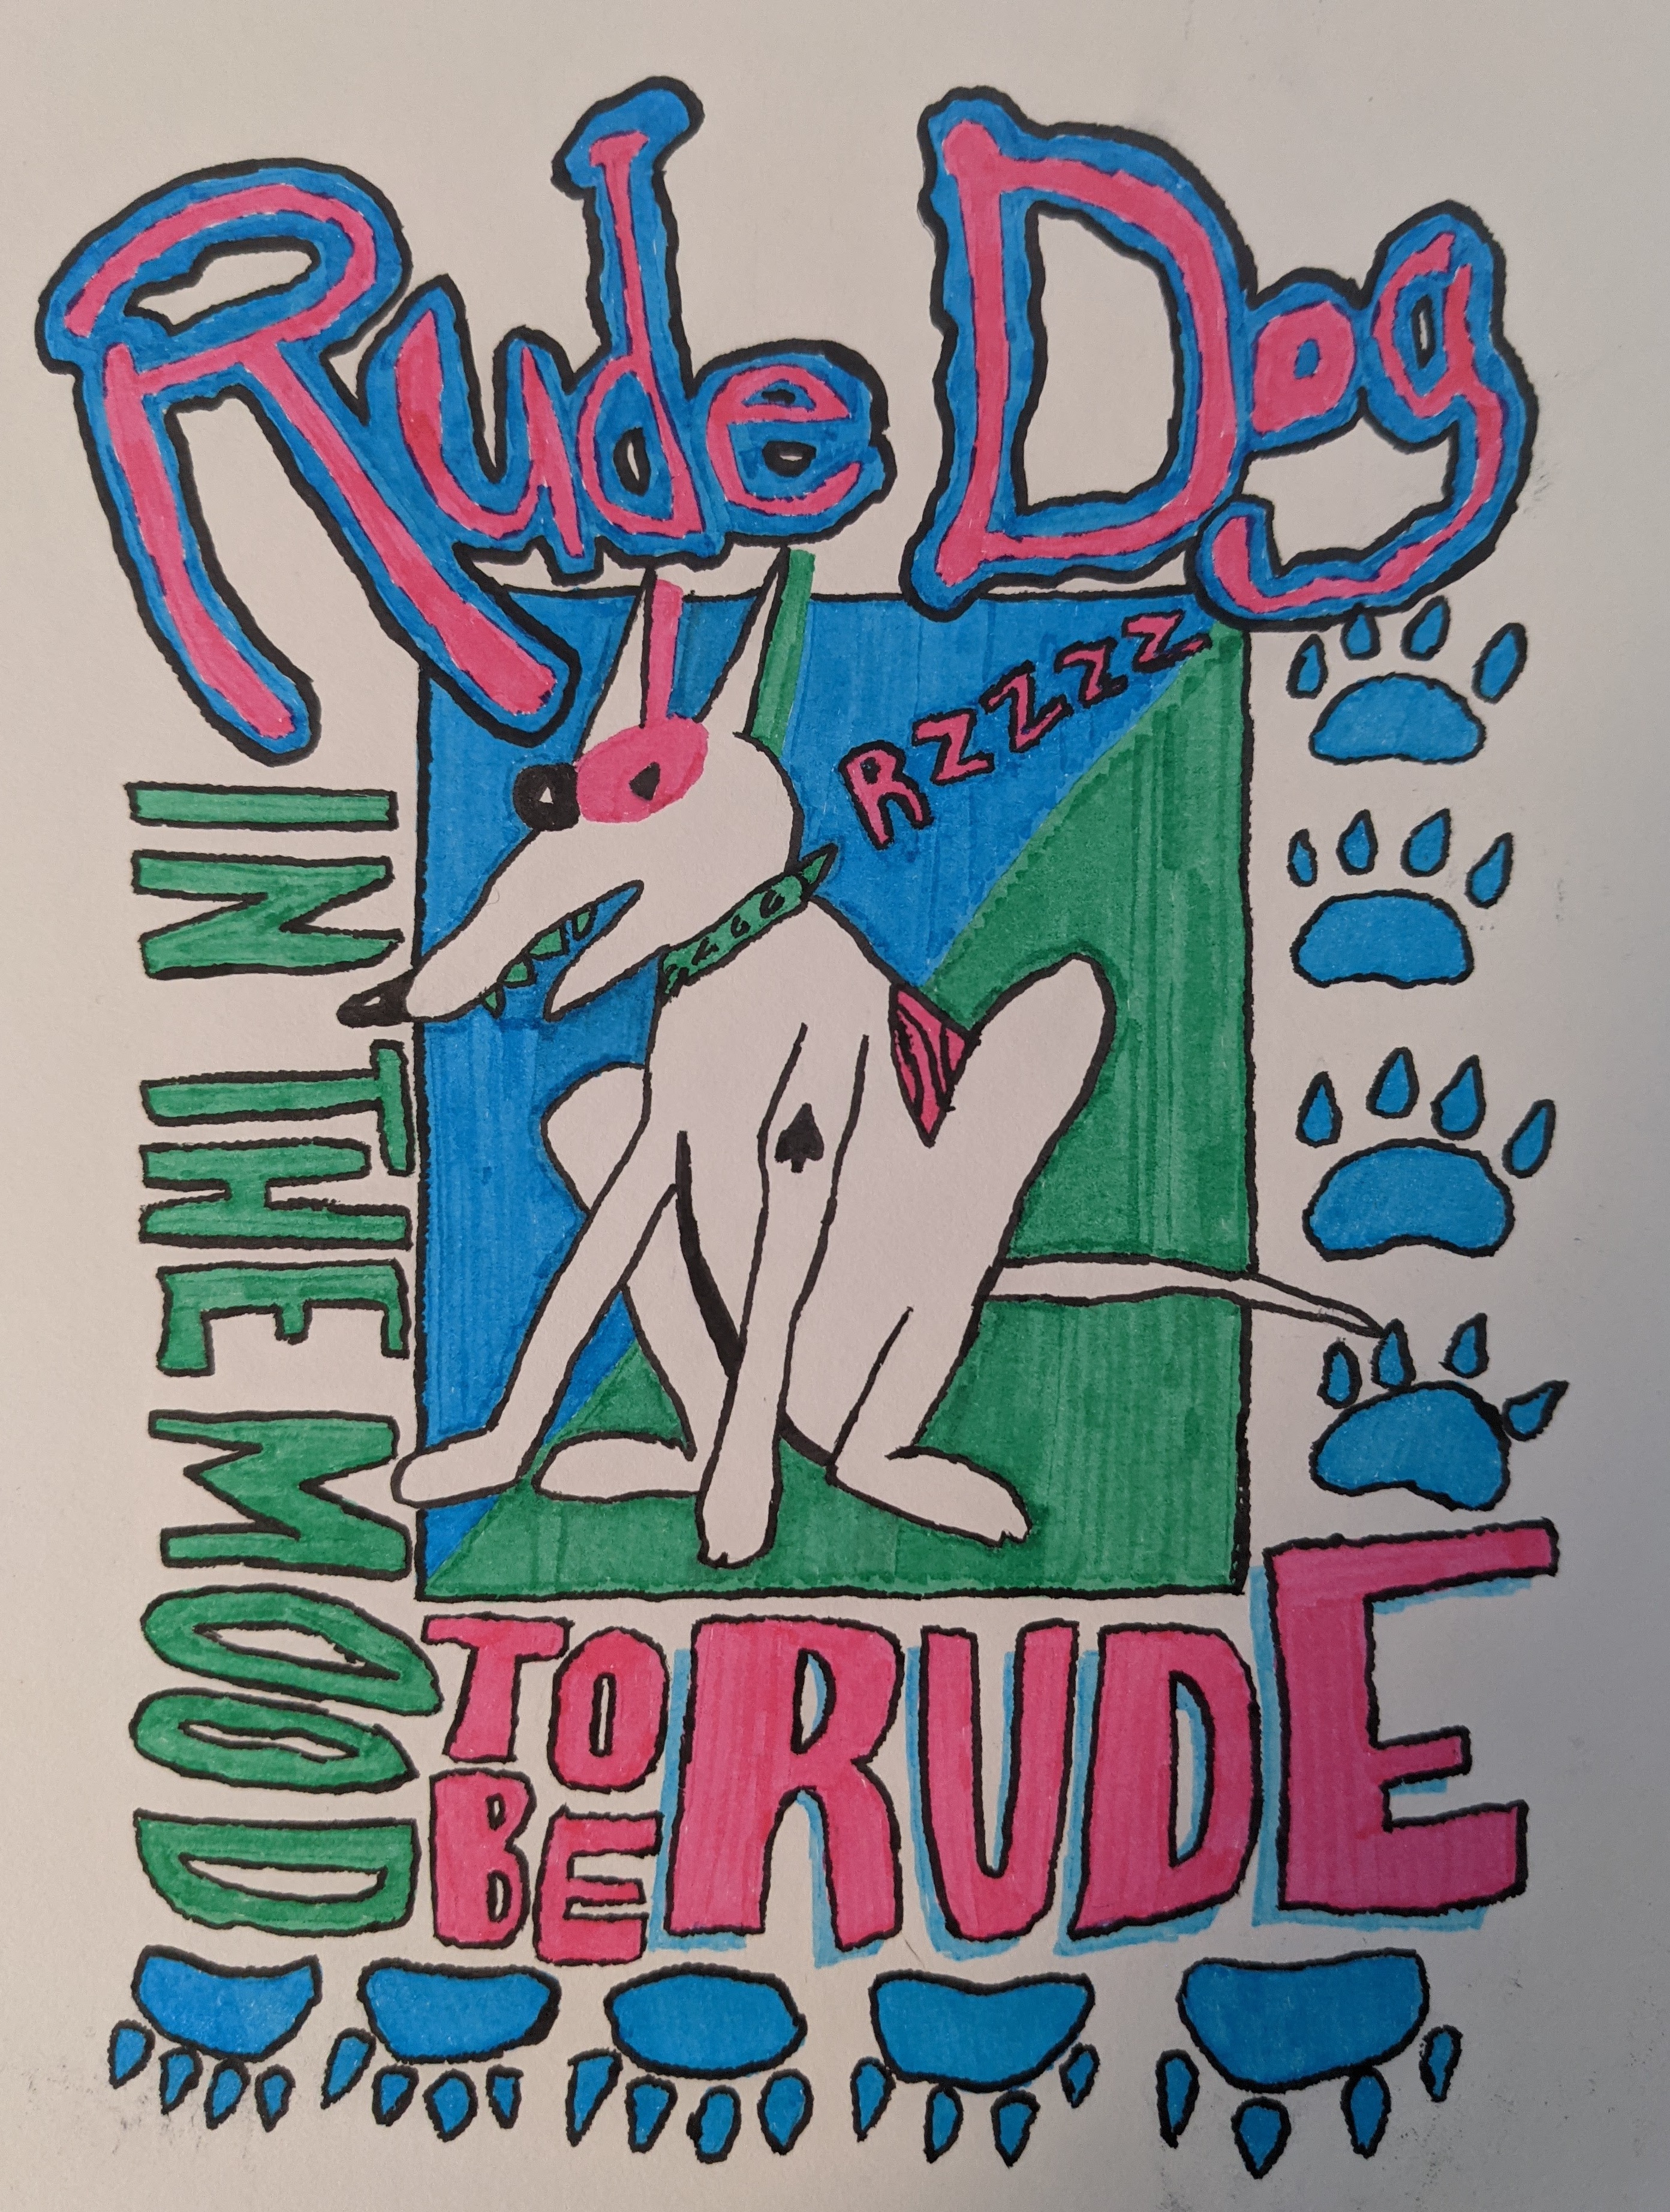 Rude Dog
RZZZZ
IN THE MOOD
TO
BE
RUDE